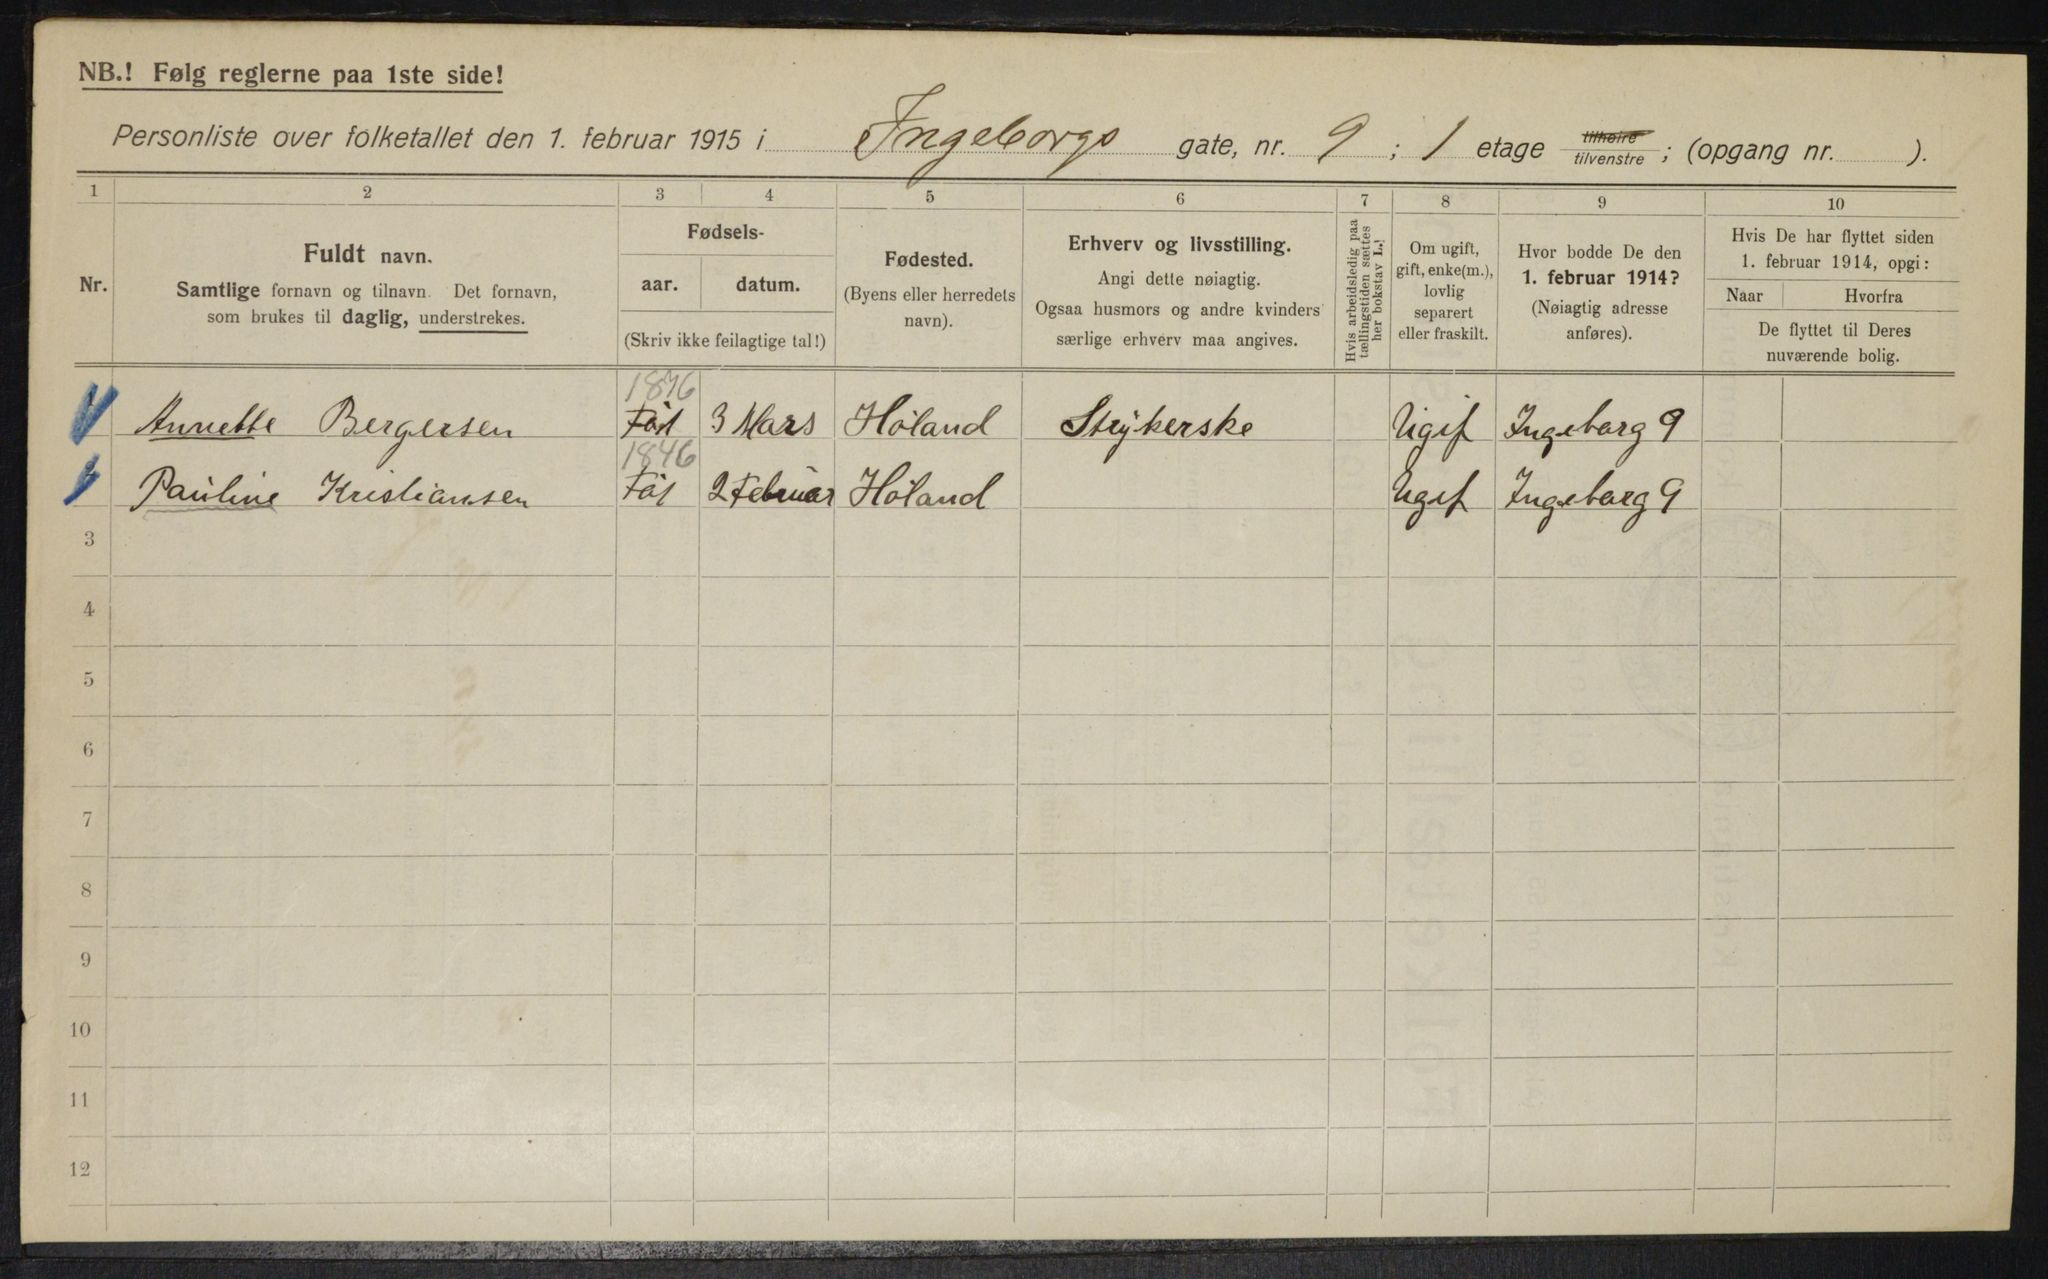 NB.! Følg reglerne paa 1ste side!
Personliste over folketallet den 1. februar 1915 i Ingeborgs gate, nr. 9 ; 1 etage tilhøire tilvenstre ; (opgang nr. ).
1 2 3 4 5 6 7 8 9 10
Nr.
Fuldt navn.
Samtlige fornavn og tilnavn. Det fornavn,
som brukes til daglig, understrekes.
Fødsels-
aar. datum.
(Skriv ikke feilagtige tal!)
Fødested.
(Byens eller herredets
navn).
Erhverv og livsstilling.
Angi dette nøiagtig.
Ogsaa husmors og andre kvinders
særlige erhverv maa angives.
Hvis arbeidsledig paa
tællingstiden sættes
her bokstav L.!
Om ugift,
gift, enke(m.),
lovlig
separert
eller fraskilt.
Hvor bodde De den
1. februar 1914?
(Nøiagtig adresse
anføres).
Hvis De har flyttet siden
1. februar 1914, opgi:
Naar Hvorfra
De flyttet til Deres
nuværende bolig.
1876
Annette Bergersen Föt 3 Mars Höland Strykerske Ugif Ingeborg 9
1846
Pauline Kristiansen Föt 2 Februar Höland Ugif Ingeborg 9
3
4
5
6
7
8
9
10
11
12